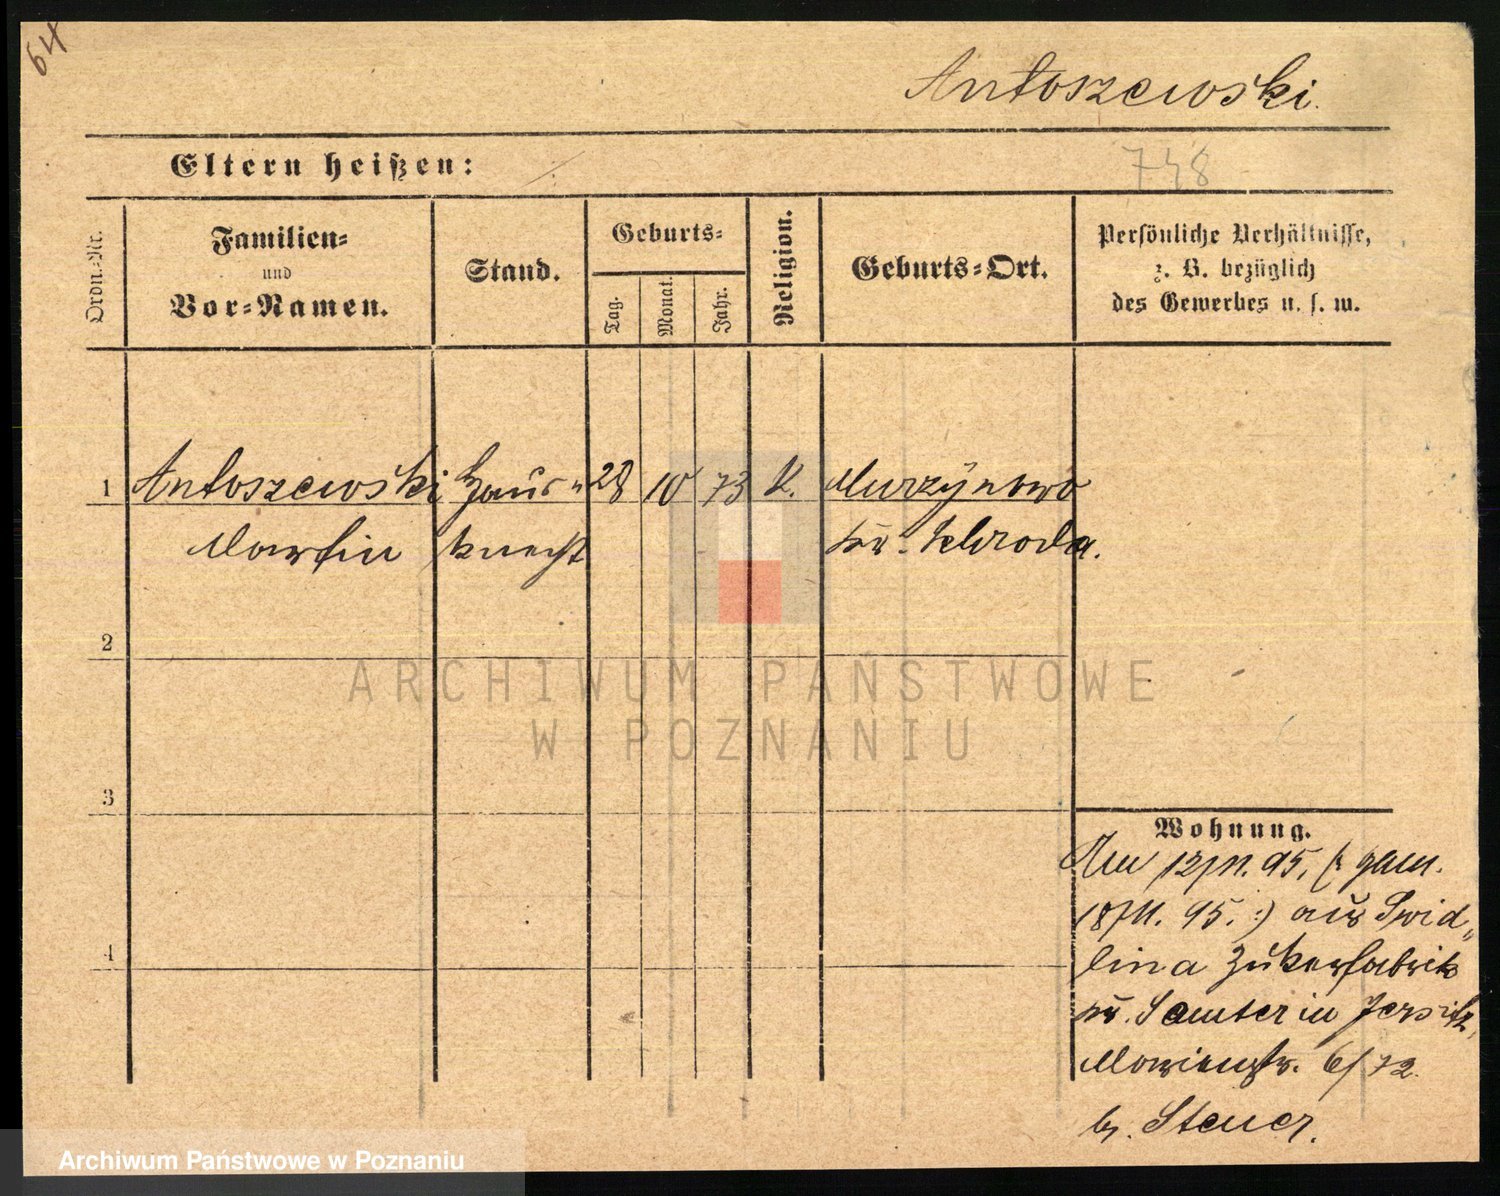 64
Antoszewski.
Eltern heißen:
748
Ordn.-Nr.
Familien-
und
Vor-Namen.
Stand.
Geburts-
Tag.
Monat.
Jahr.
Religion.
Geburts-Ort.
Persönliche Verhältnisse,
z. B. bezüglich
des Gewerbes u. s. w.
1 Antoszewski Haus- 28 10 73 K. Murzynowo
Martin knecht kr. Schroda.
2
3
4
Wohnung.
Am 12/11. 95. (: gem.
18/11. 95. :) aus Swid„
lina Zukerfabrik
kr. Samter in Jersitz,
Marienstr. 6/72
b. Steuer.
ARCHIWUM PAŃSTWOWE
W POZNANIU
Archiwum Państwowe w Poznaniu